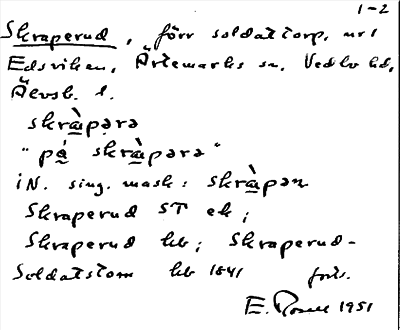 1-2
Skraperud, förr soldattorp, nr 1
Edsviken, Ärtemarks sn. Vedbo hd,
Älvsb. l.
skrà̱pərə
"pá̱ skrà̱pərə"
iN. sing. mask: skrà̱pən
Skraperud ST ek;
Skraperud kb; Skraperud-
Soldatstom kb 1841 forts.
E. Rosell 1951